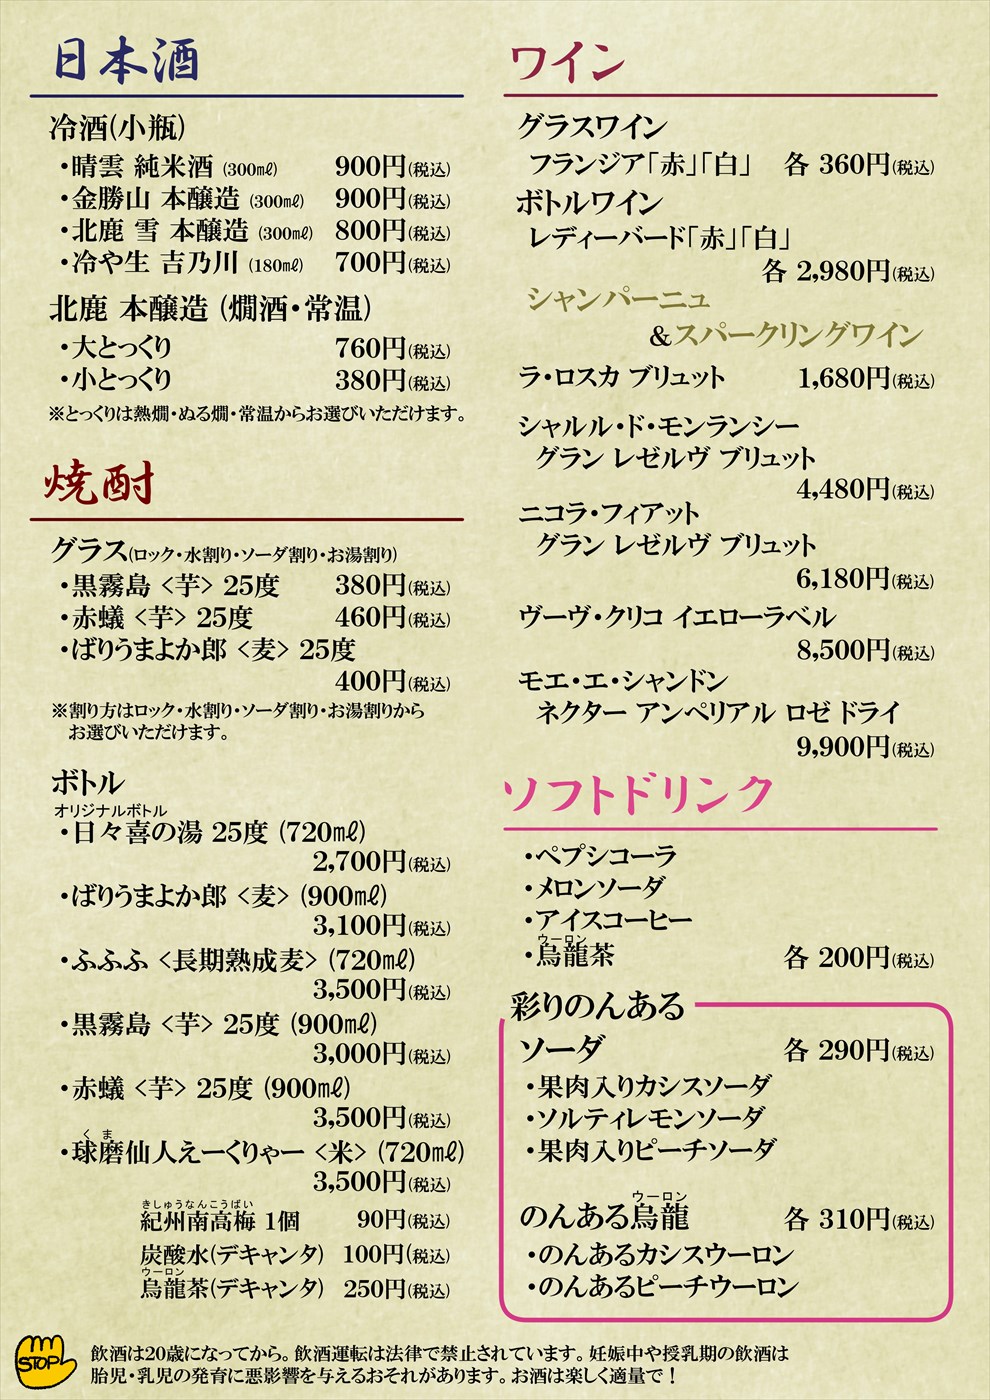 日本酒
冷酒(小瓶)
・晴雲 純米酒 (300㎖) 900円(税込)
・金勝山 本醸造 (300㎖) 900円(税込)
・北鹿 雪 本醸造 (300㎖) 800円(税込)
・冷や生 吉乃川 (180㎖) 700円(税込)
北鹿 本醸造 (燗酒・常温)
・大とっくり 760円(税込)
・小とっくり 380円(税込)
※とっくりは熱燗・ぬる燗・常温からお選びいただけます。
焼酎
グラス(ロック・水割り・ソーダ割り・お湯割り)
・黒霧島 <芋> 25度 380円(税込)
・赤蟻 <芋> 25度 460円(税込)
・ばりうまよか郎 <麦> 25度
400円(税込)
※割り方はロック・水割り・ソーダ割り・お湯割りから
お選びいただけます。
ボトル
オリジナルボトル
・日々喜の湯 25度 (720㎖)
2,700円(税込)
・ばりうまよか郎 <麦> (900㎖)
3,100円(税込)
・ふふふ <長期熟成麦> (720㎖)
3,500円(税込)
・黒霧島 <芋> 25度 (900㎖)
3,000円(税込)
・赤蟻 <芋> 25度 (900㎖)
3,500円(税込)
くま
・球磨仙人えーくりゃー <米> (720㎖)
3,500円(税込)
きしゅうなんこうばい
紀州南高梅 1個 90円(税込)
炭酸水(デキャンタ) 100円(税込)
ウーロン
烏龍茶(デキャンタ) 250円(税込)
ワイン
グラスワイン
フランジア「赤」「白」 各 360円(税込)
ボトルワイン
レディーバード「赤」「白」
各 2,980円(税込)
シャンパーニュ
&スパークリングワイン
ラ・ロスカ ブリュット 1,680円(税込)
シャルル・ド・モンランシー
グラン レゼルヴ ブリュット
4,480円(税込)
ニコラ・フィアット
グラン レゼルヴ ブリュット
6,180円(税込)
ヴーヴ・クリコ イエローラベル
8,500円(税込)
モエ・エ・シャンドン
ネクター アンペリアル ロゼ ドライ
9,900円(税込)
ソフトドリンク
・ペプシコーラ
・メロンソーダ
・アイスコーヒー
ウーロン
・烏龍茶 各 200円(税込)
彩りのんある
ソーダ 各 290円(税込)
・果肉入りカシスソーダ
・ソルティレモンソーダ
・果肉入りピーチソーダ
ウーロン
のんある烏龍 各 310円(税込)
・のんあるカシスウーロン
・のんあるピーチウーロン
STOP
飲酒は20歳になってから。飲酒運転は法律で禁止されています。妊娠中や授乳期の飲酒は
胎児・乳児の発育に悪影響を与えるおそれがあります。お酒は楽しく適量で！